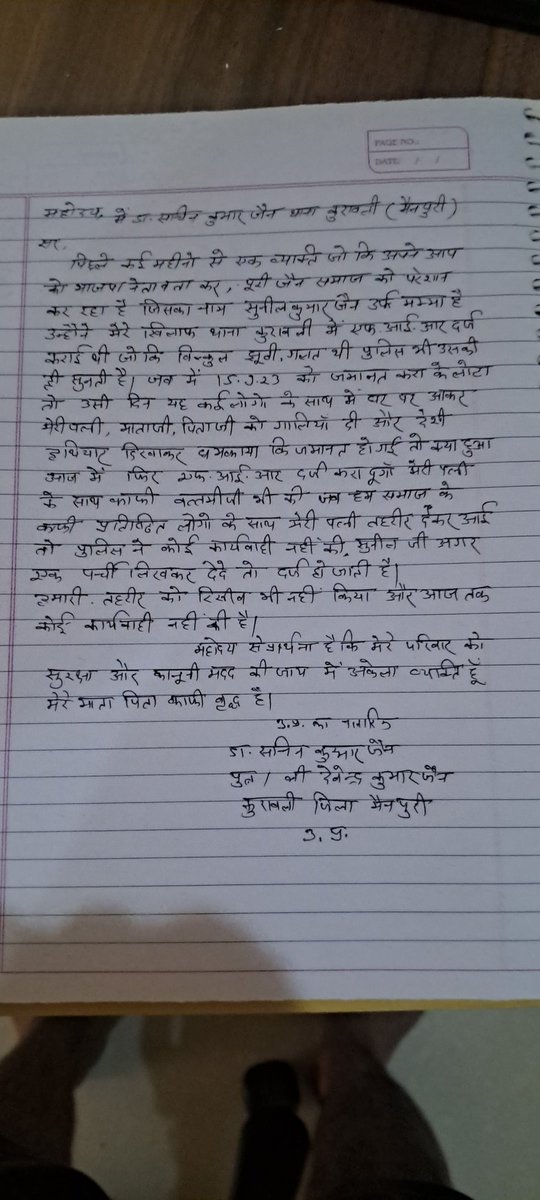 PAGE NO.:
DATE: / /
महोदय, में डा. सचिन कुमार जैन थाना कुरावली (मैनपुरी)
सर,
पिछले कई महीनो से एक व्यक्ति जो कि अपने आप
को भाजपा नेता बता कर, पूरी जैन समाज को परेशान
कर रहा है जिसका नाम सुनील कुमार जैन उर्फ मम्मा है
उन्होंने मेरे खिलाफ थाना कुरावली में एफ.आई.आर दर्ज
कराई थी जो कि बिल्कुल झूठी, गलत थी पुलिस भी उसकी
ही सुनती है। जब में 15.7.23 को जमानत करा के लौटा
तो उसी दिन यह कई लोगो के साथ में घर पर आकर
मेरी पत्नी, माताजी, पिताजी को गालियाँ दी और देशी
हथियार दिखाकर धमकाया कि जमानत हो गई तो क्या हुआ
आज में फिर एफ.आई.आर दर्ज करा दूगाँ मेरी पत्नी
के साथ काफी बत्तमीजी भी की जब हम समाज के
काफी प्रतिष्ठित लोगो के साथ मेरी पत्नी तहरीर देकर आई
तो पुलिस ने कोई कार्यवाही नहीं की, सुनील जी अगर
एक पर्ची लिखकर देदे तो दर्ज हो जाती है।
हमारी तहरीर को रिसीव भी नहीं किया और आज तक
कोई कार्यवाही नहीं की है।
महोदय से प्रार्थना है कि मेरे परिवार को
सुरक्षा और कानूनी मदद की जाय में अकेला व्यक्ति हूँ
मेरे माता पिता काफी वृद्ध है।
उ.प्र. का नागरिक
डा. सचिन कुमार जैन
पुत्र / श्री देवेन्द्र कुमार जैन
कुरावली जिला मैनपुरी
उ. प्र.